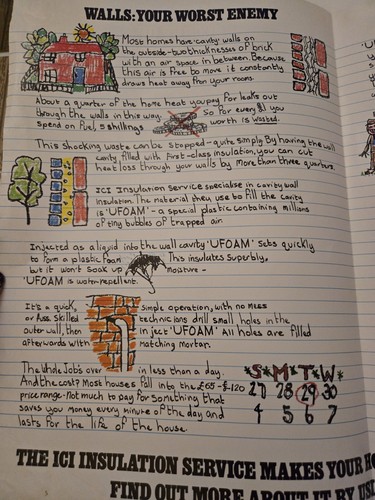 WALLS: YOUR WORST ENEMY
Most homes have cavity walls on
the outside-two thicknesses of brick
with an air space in between. Because
this air is free to move it constantly
draws heat away from your rooms.
About a quarter of the home heat you pay for leaks out
through the walls in this way. So for every £1 you
spend on fuel, 5 shillings worth is wasted.
This shocking waste can be stopped - quite simply. By having the wall
cavity filled with first-class insulation, you can cut
heat loss through your walls by more than three quarters.
ICI Insulation Service specialise in cavity wall
insulation. The material they use to fill the cavity
is 'UFOAM' - a special plastic containing millions
of tiny bubbles of trapped air.
Injected as a liquid into the wall cavity 'UFOAM' sets quickly
to form a plastic foam This insulates superbly,
but it won't soak up moisture -
'UFOAM' is water-repellent.
It's a quick, simple operation, with no mess
or skilled technicians drill small holes in the
outer wall, then inject 'UFOAM' All holes are filled
afterwards with matching mortar.
The whole job's over in less than a day.
And the cost? Most houses fall into the £65-£120
price range - Not much to pay for something that
saves you money every minute of the day and
lasts for the life of the house.
S M T W
27 28 29 30
4 5 6 7
THE ICI INSULATION SERVICE MAKES YOUR
FIND OUT MORE ABOUT IT BY